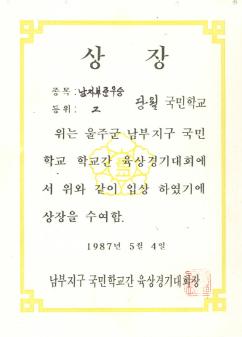 상장
종목: 남자부준우승
등위: 2
국민학교
위는 울주군 남부지구 국민
학교 학교간 육상경기대회에
서 위와 같이 입상 하였기에
상장을 수여함.
1987년 5월 4일
남부지구 국민학교간 육상경기대회장